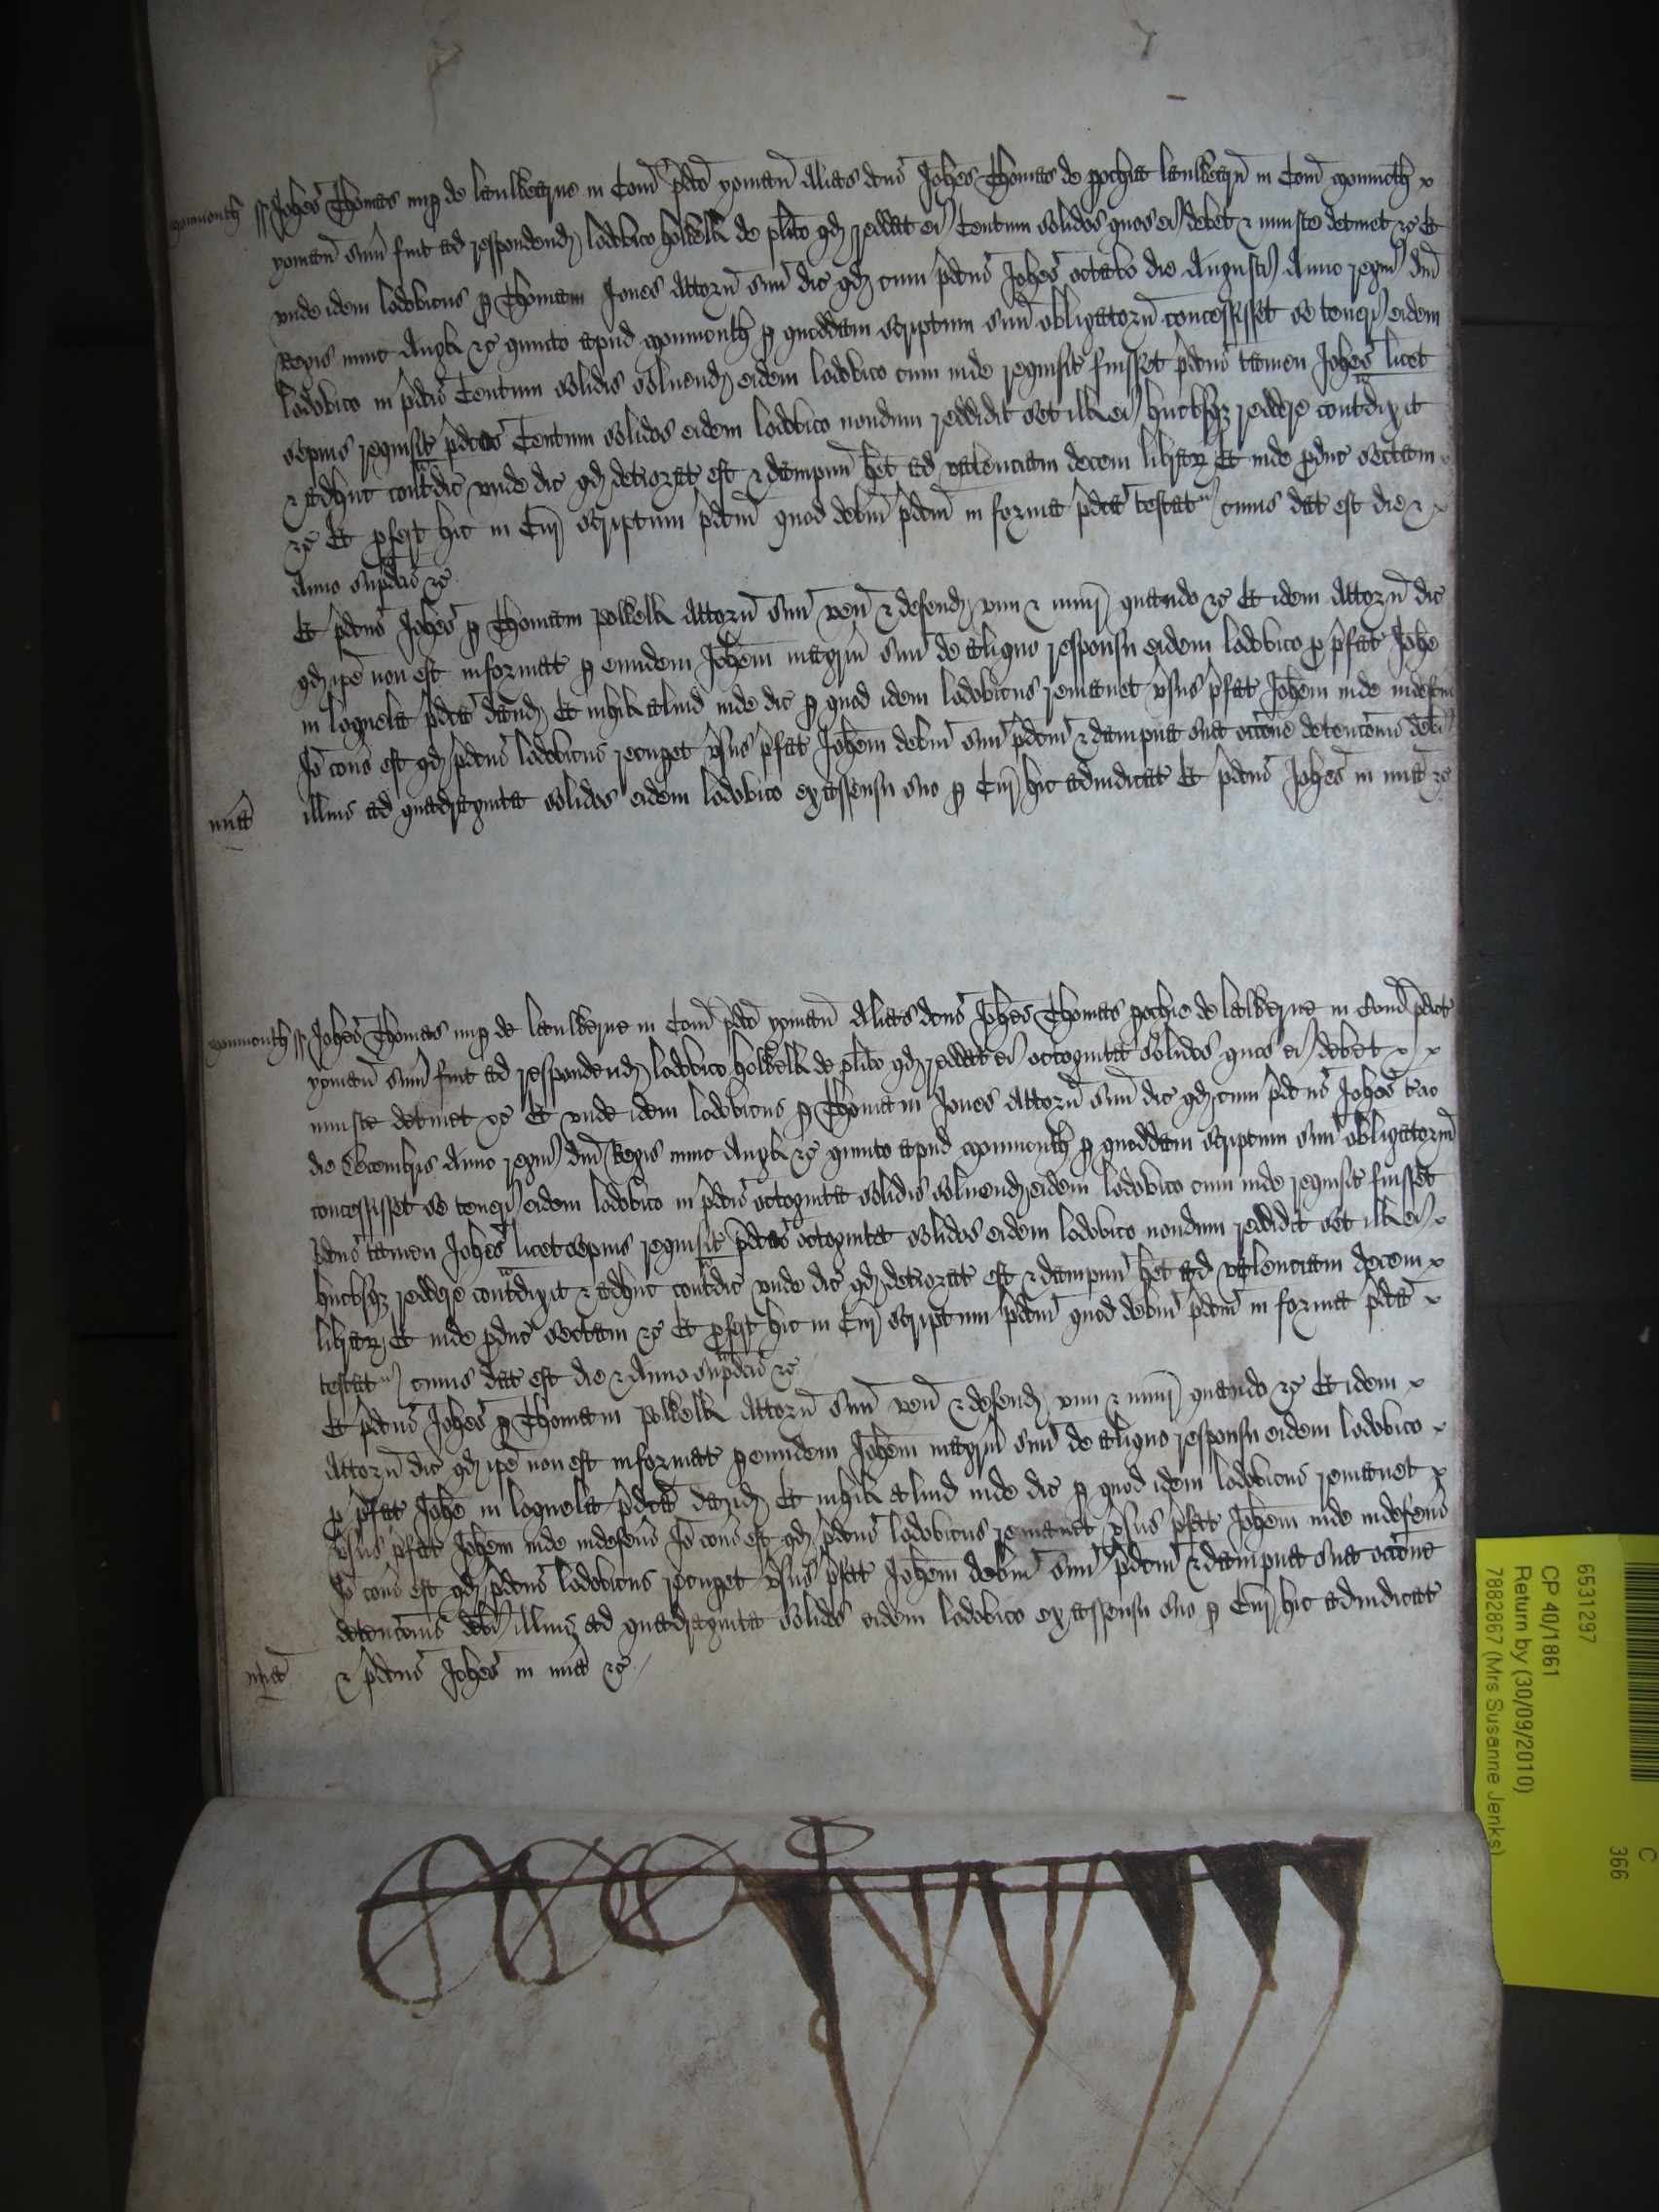 Monmouth ss Joħes Thomas nup de lanlbarne in Com̄ p̄dc̄o yoman̄ Alias dc̄us Joħes Thomas de pochia lanlbarn̄ in Com̄ Monmoth
yoman̄ sum̄ fuit ad respondend lodovico hoƀell de pl̄ito qđ reddat ei Centum solidos quos ei debet & iniuste detinet &c̄ Et
unde idem lodovicus p Thomam Jones Attorn̄ suū dic̄ qđ cum p̄dc̄us Joħes octavo die Augusti Anno regni dn̄i
Regis nunc Angl &c̄ quinto apud Monmouth p quoddam scriptum suū obligatoriū concessisset se teneri eidem
lodovico in p̄dc̄is Centum solidis solvend eidem lodovico cum inde requisit fuisset p̄dc̄us tamen Joħes licet
sepius requisit p̄dc̄os Centum solidos eidem lodovico nondum reddidit set ill ei hucusq reddere contradixit
& adhuc contradic̄ unde dic̄ qđ deteriorat est & dampnū het ad valenciam decem librar Et inde pduc̄ sectam
&c̄ Et pfert hic in Cur scriptum p̄dc̄m quod debm̄ p̄dc̄m in forma p̄dc̄a testat cuius dat est die &
Anno supradc̄is &c̄
Et p̄dc̄us Joħes p Thomam poƀell Attorn̄ suū ven̄ & defend vim & iniur quando &c̄ Et idem Attorn̄ dic̄
qđ ip̄e non est informat p eundem Joħem magr̄m suū de aliquo responsu eidem lodovico p p̄fat Joħe
in loquela p̄dc̄a dand Et nihil aliud inde dic̄ p quod idem lodovicus remanet v̄sus p̄fat Joħem inde indefens
Jo cons̄ est qđ p̄dc̄us lodovicus recuperet v̄sus p̄fat Joħem debm̄ suū p̄dc̄m & dampna sua occōne detencōnis debi
illius ad quadraginta solidos eidem lodovico ex assensu suo p Cur hic adiudicat Et p̄dc̄us Joħes in mīa &c̄
mīa
Monmouth ss Joħes Thomas nup de lanlberne in Com̄ p̄dc̄o yoman̄ Alias dc̄us Joħes Thomas pochie de lalberne in Com̄ p̄dc̄o
yoman̄ sum̄ fuit ad respondend lodovico hoƀell de pl̄ito qđ reddat ei octoginta solidos quos ei debet &
iniuste detinet &c̄ Et unde idem lodovicus p Thomam Jones Attorn̄ suū dic̄ qđ cum p̄dc̄us Joħes
die Decembris Anno regni dn̄i Regis nunc Angl &c̄ quinto apud Monmouth p quoddam scriptum suū obligatoriū
concessisset se teneri eidem lodovico in p̄dc̄is octoginta solidis solvend eidem lodovico cum inde requisit fuisset
p̄dc̄us tamen Joħes licet sepius requisit p̄dc̄os octoginta solidos eidem lodovico nondum reddidit set ill ei
hucusq reddere contradixit & adhuc contradic̄ unde dic̄ qđ deteriorat est & dampnū het ad valenciam decem
librar Et inde pduc̄ sectam &c̄ Et pfert hic in Cur scriptum p̄dc̄m quod debm̄ p̄dc̄m in forma p̄dc̄a
testat cuius dat est die & Anno supradc̄is &c̄
Et p̄dc̄us Joħes p Thomam poƀell Attorn̄ suū ven̄ & defend vim & iniur quando &c̄ Et idem
Attorn̄ dic̄ qđ ip̄e non est informat p eundem Joħem magr̄m suū de aliquo responsu eidem lodovico
p p̄fat Joħe in loquela p̄dc̄a dand Et nihil aliud inde dic̄ p quod idem lodovicus remanet
v̄sus p̄fat Joħem inde indefens̄ Jo cons̄ est qđ p̄dc̄us lodovicus remanet v̄sus p̄fat Joħem inde indefens̄
Jo cons̄ est qđ p̄dc̄us lodovicus recuperet v̄sus p̄fat Joħem debm̄ suū p̄dc̄m & dampna sua occōne
detencōnis debi illius ad quadraginta solidos eidem lodovico ex assensu suo p Cur hic adiudicat
mīa & p̄dc̄us Joħes in mīa &c̄
C
366
6531297
CP 40/1861
Return by (30/09/2010)
7882867 (Mrs Susanne Jenks)